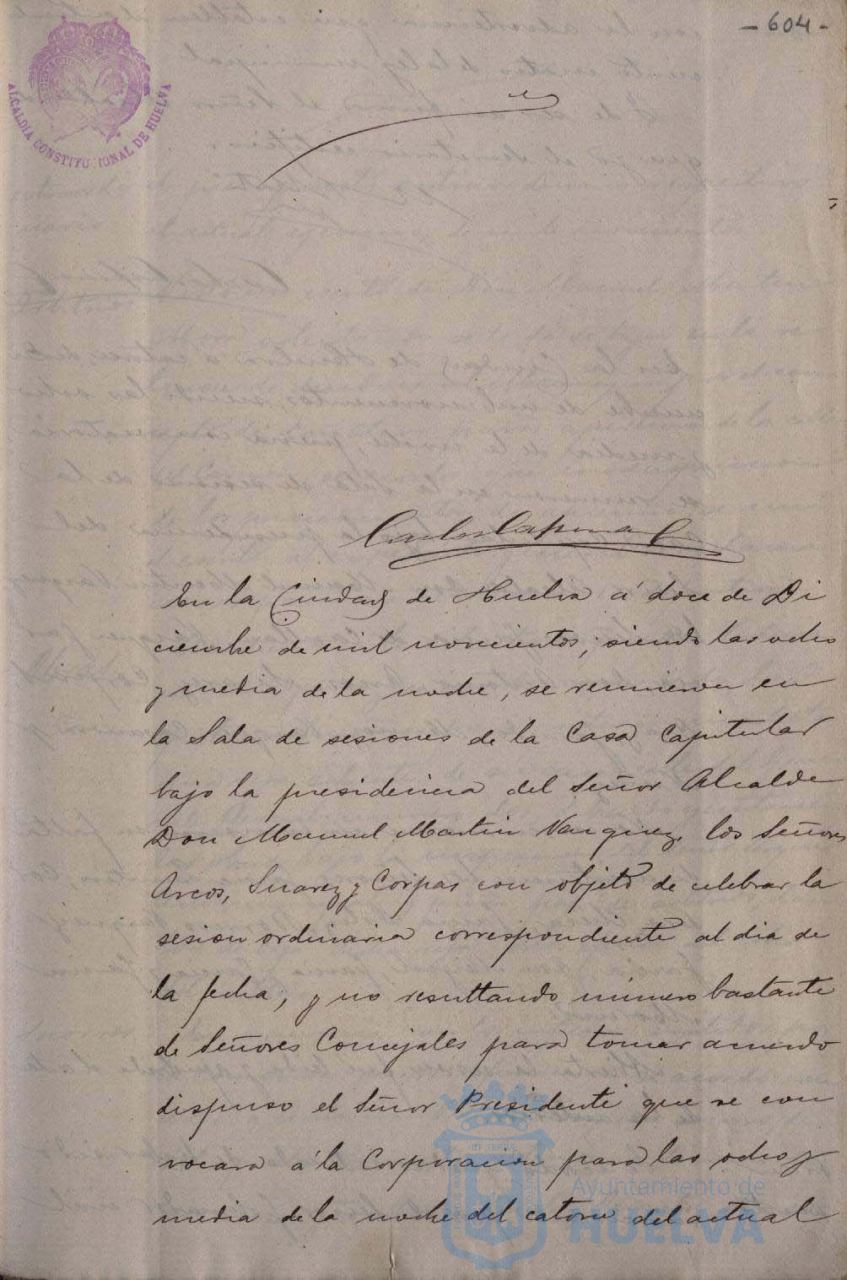 - 604 -
ALCALDÍA CONSTITUCIONAL DE HUELVA
En la Ciudad de Huelva á doce de Di
ciembre de mil novecientos, siendo las ocho
y media de la noche, se reunieron en
la Sala de sesiones de la Casa Capitular
bajo la presidencia del Señor Alcalde
Don Manuel Martin Vazquez, los Señores
Arcos, Suarez y Corpas con objeto de celebrar la
sesion ordinaria correspondiente al dia de
la fecha, y no resultando número bastante
de Señores Concejales para tomar acuerdo
dispuso el Señor Presidente que se con
vocara á la Corporacion para las ocho y
media de la noche del catorce del actual
Ayuntamiento de
HUELVA